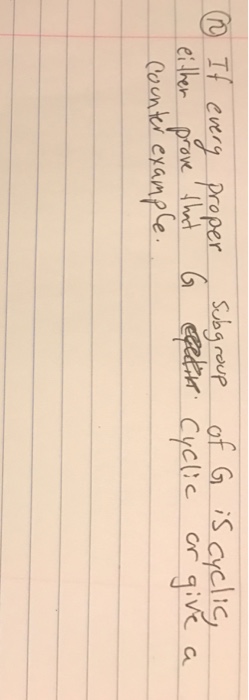 (n) If every proper subgroup of G is cyclic,
either prove that G cyclic or give a
counter example.